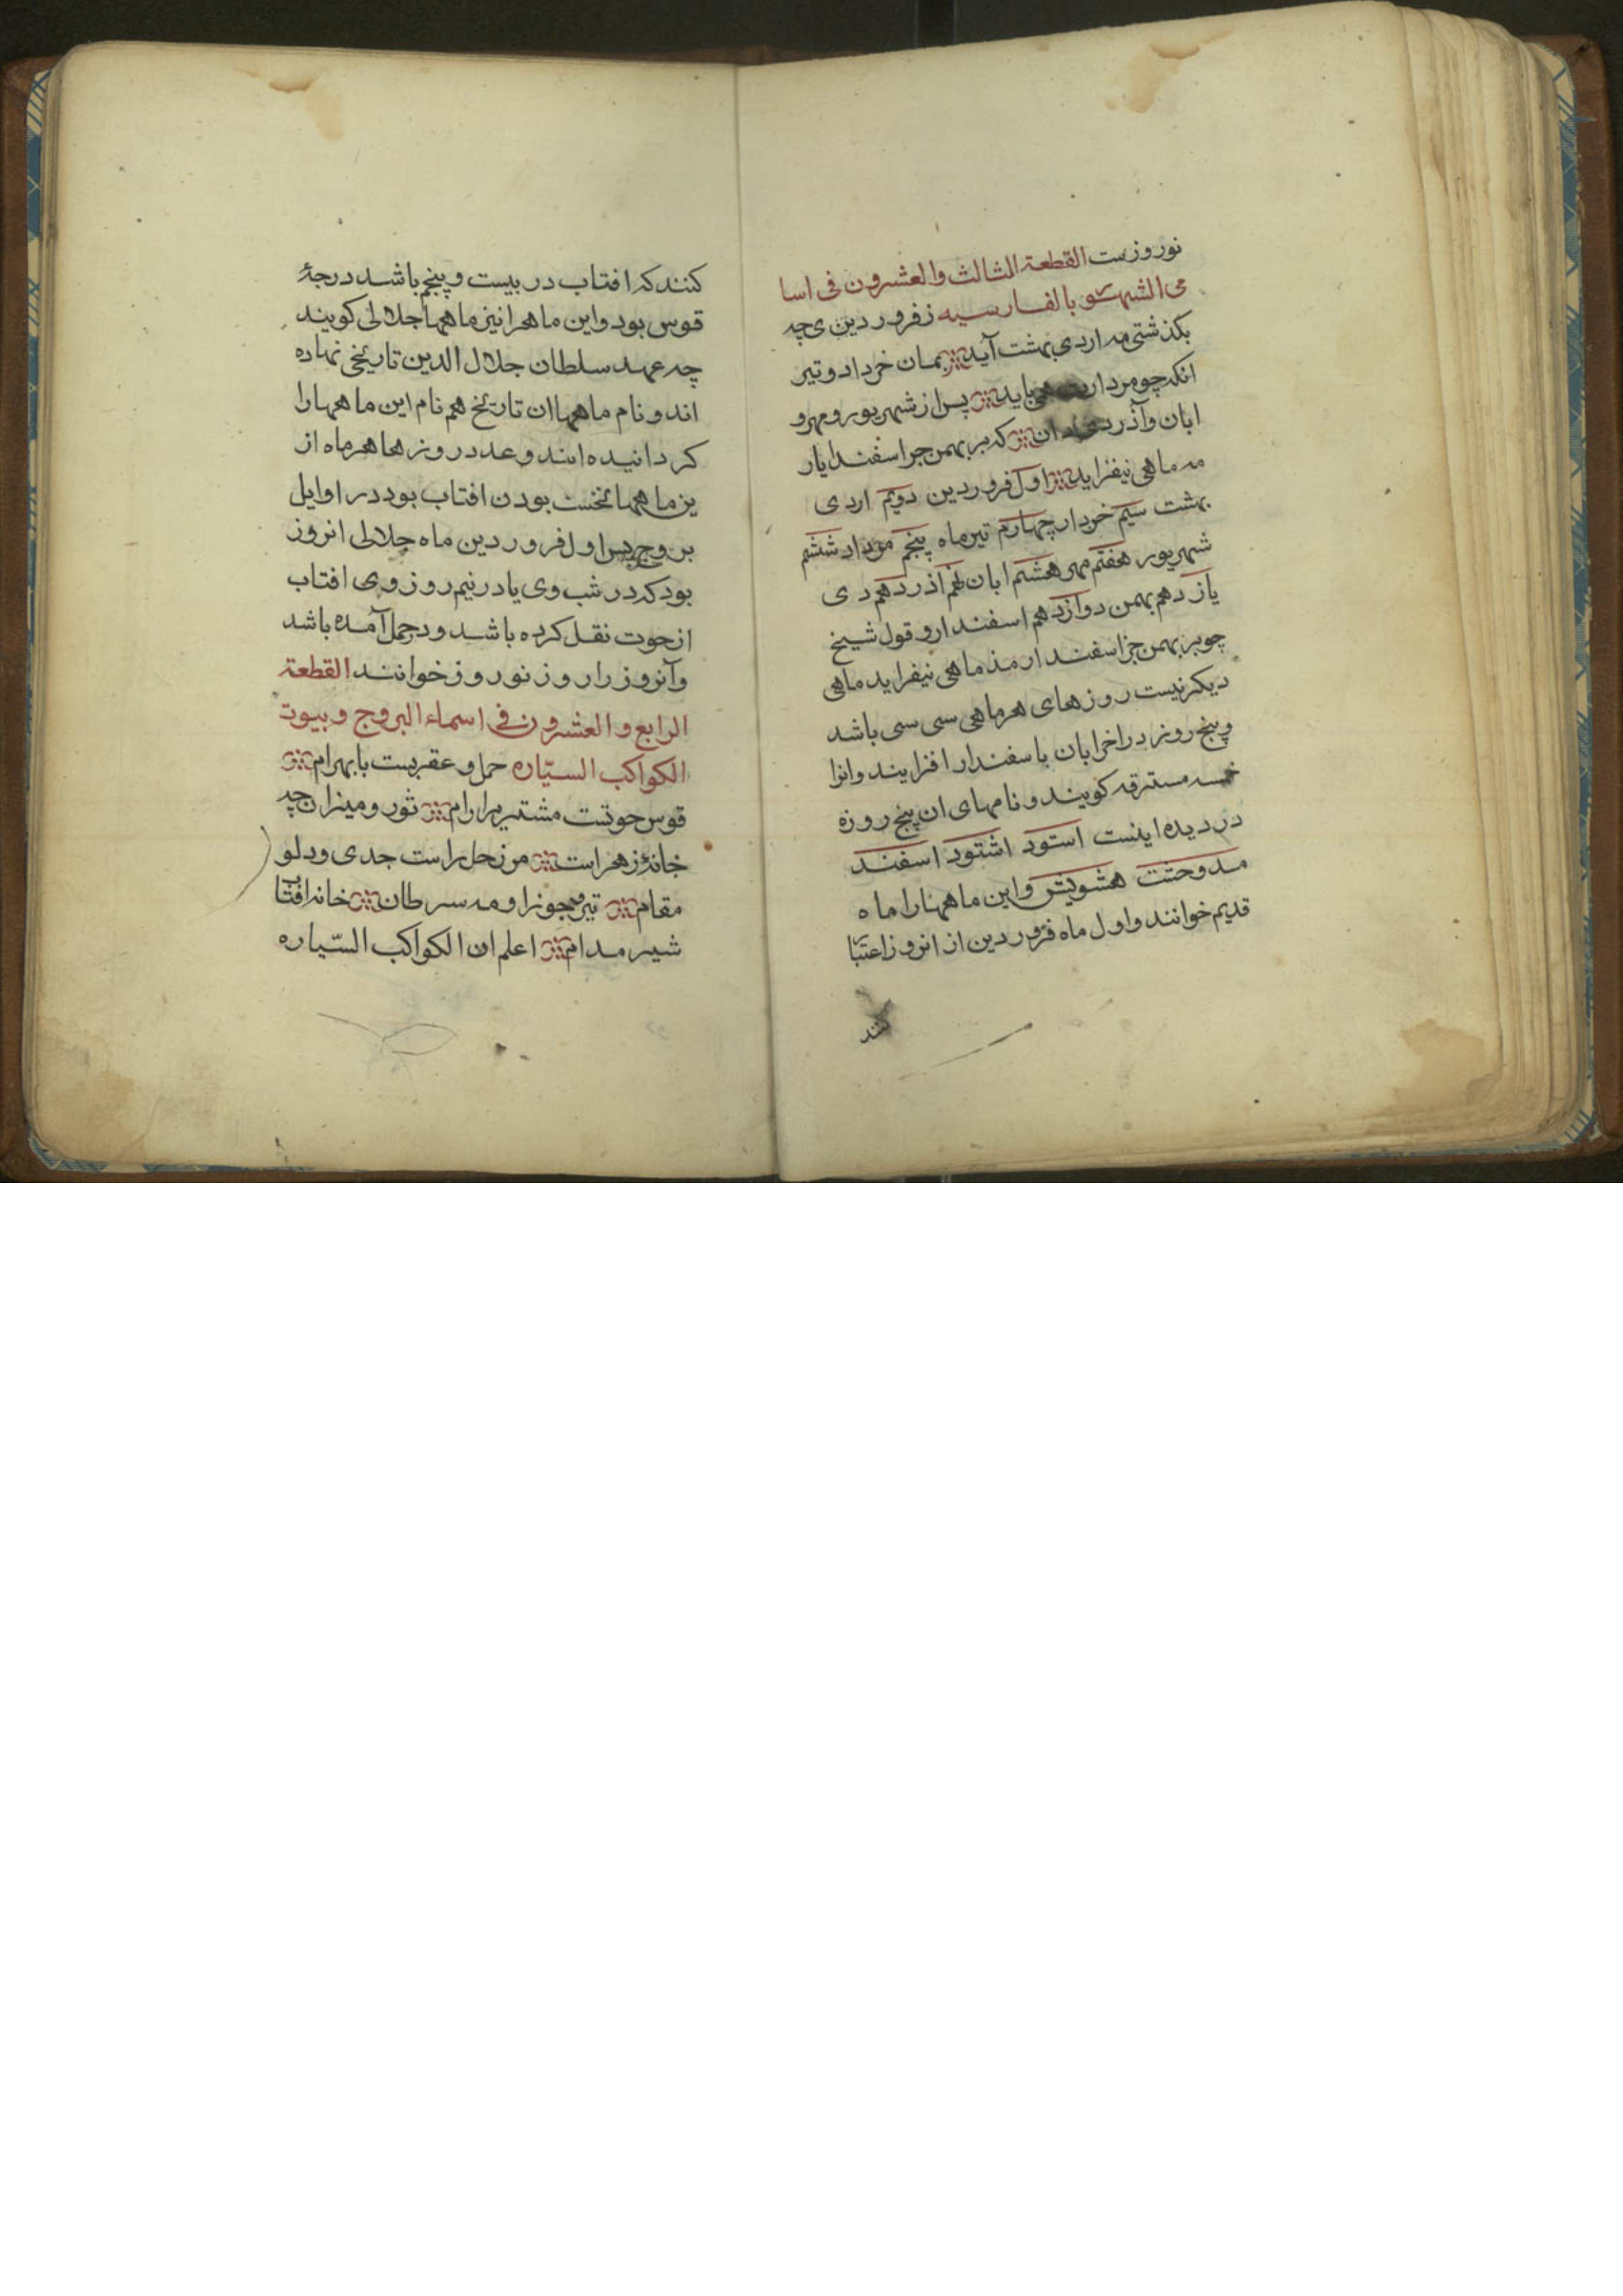 نوروزست القطعة الثالث والعشرون فی اسا
می الشهور بالفارسیه زفروردین چه
بکذشتی مه اردی بهشت آید بمان خرداد و تیر
انکه چو مردادت همی باید پس از شهریور و مهر و
ابان و آذر دان که بر بهمن جز اسفندایار
مه ماهی نیفزاید اول فروردین دویم اردی
بهشت سیم خرداد چهارم تیر ماه پنجم مرداد ششم
شهریور هفتم مهر هشتم ابان نهم اذر دهم دی
یازدهم بهمن دوازدهم اسفندار و قول شیخ
چو بر بهمن جز اسفندارمذ ماهی نیفزاید ماهی
دیکر نیست روزهای هر ماهی سی سی باشد
و پنج روز در اخر ابان یا اسفندار افزایند وانرا
خمسه مسترقه کویند و نامهای ان پنج روزه
دزدیده اینست استود اشتود اسفند
مد وحتت هشویش و این ماهها را ماه
قدیم خوانند و اول ماه فروردین از انروز اعتبا
کنند
کنند که افتاب در بیست و پنجم باشد درجهٔ
قوس بود و این ماهها را نیز ماهها جلالی کویند
چه عهد سلطان جلال الدین تاریخی نهاده
اند و نام ماهها ان تاریخ هم نام این ماهها را
کردانیده اند و عدد روزها هر ماه از
ین ماهها نخست بودن افتاب بود در اوایل
بروج پس اول فروردین ماه جلالی انروز
بود که در شب وی یا در نیم روز وی افتاب
از حوت نقل کرده باشد و در حمل آمده باشد
و آنروز را روز نوروز خوانند القطعة
الرابع والعشرون فی اسماء البروج و بیوت
الکواکب السیّاره حمل و عقربست با بهرام
قوس حوتست مشتری را رام ثور و میزان چه
خانهٔ زهراست مر زحل راست جدی و دلو
مقام تیر بجوزا و مه سرطان خانه افتاب
شیر مدام اعلم ان الکواکب السّیاره